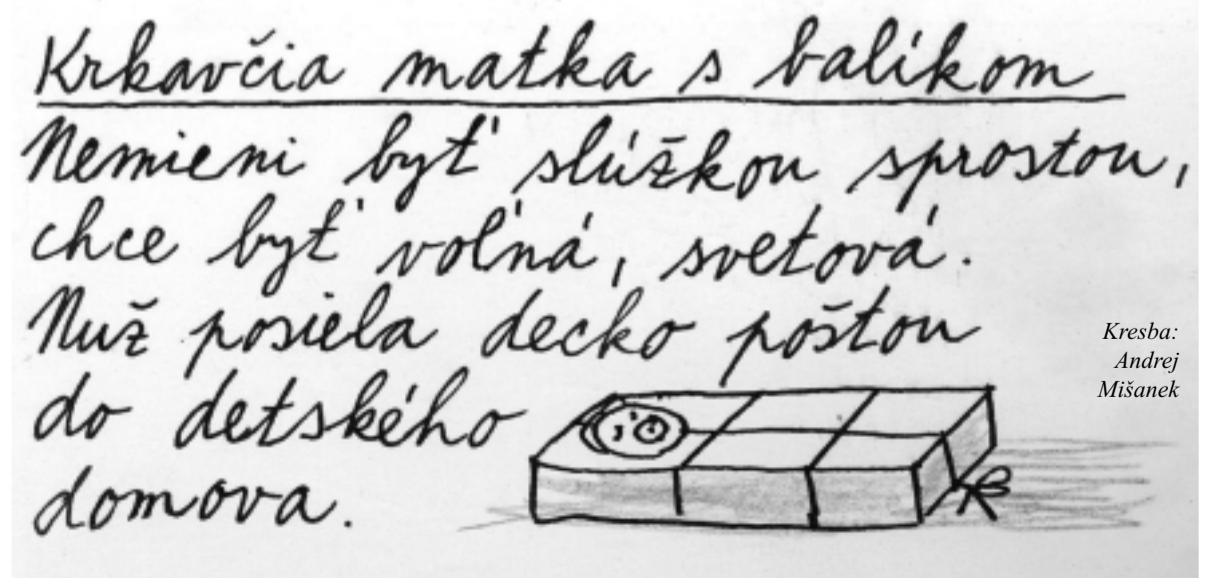 Krkavčia matka s balíkom
Nemieni byť slúžkou sprostou,
chce byť voľná, svetová.
Nuž posiela decko poštou
do detského
domova.
Kresba:
Andrej
Mišanek